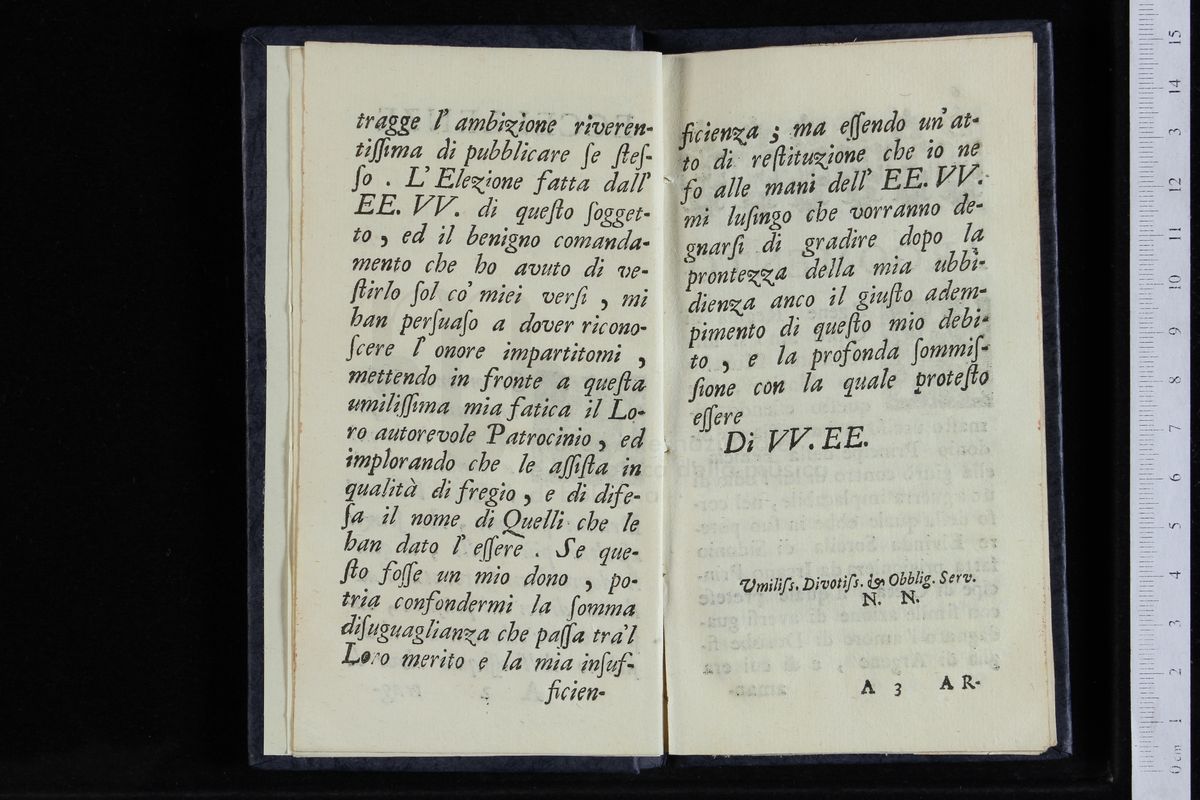 tragge l' ambizione riveren-
tiſſima di pubblicare ſe ſteſ-
ſo . L' Elezione fatta dall'
EE. VV. di queſto ſogget-
to , ed il benigno comanda-
mento che ho avuto di ve-
ſtirlo ſol co' miei verſi , mi
han perſuaſo a dover ricono-
ſcere l' onore impartitomi ,
mettendo in fronte a queſta
umiliſſima mia fatica il Lo-
ro autorevole Patrocinio , ed
implorando che le aſſiſta in
qualità di fregio , e di dife-
ſa il nome di Quelli che le
han dato l' eſſere . Se que-
ſto foſſe un mio dono , po-
tria confondermi la ſomma
diſuguaglianza che paſſa tra'l
Loro merito e la mia inſuf-
ficien-
ficienza ; ma eſſendo un' at-
to di reſtituzione che io ne
fo alle mani dell' EE. VV.
mi luſingo che vorranno de-
gnarſi di gradire dopo la
prontezza della mia ubbi-
dienza anco il giuſto adem-
pimento di queſto mio debi-
to , e la profonda ſommiſ-
ſione con la quale proteſto
eſſere
Di VV. EE.
Umiliſs. Divotiſs. & Obblig. Serv.
N. N.
A 3 AR-
15
14
13
12
11
10
9
8
7
6
5
4
3
2
1
0 cm